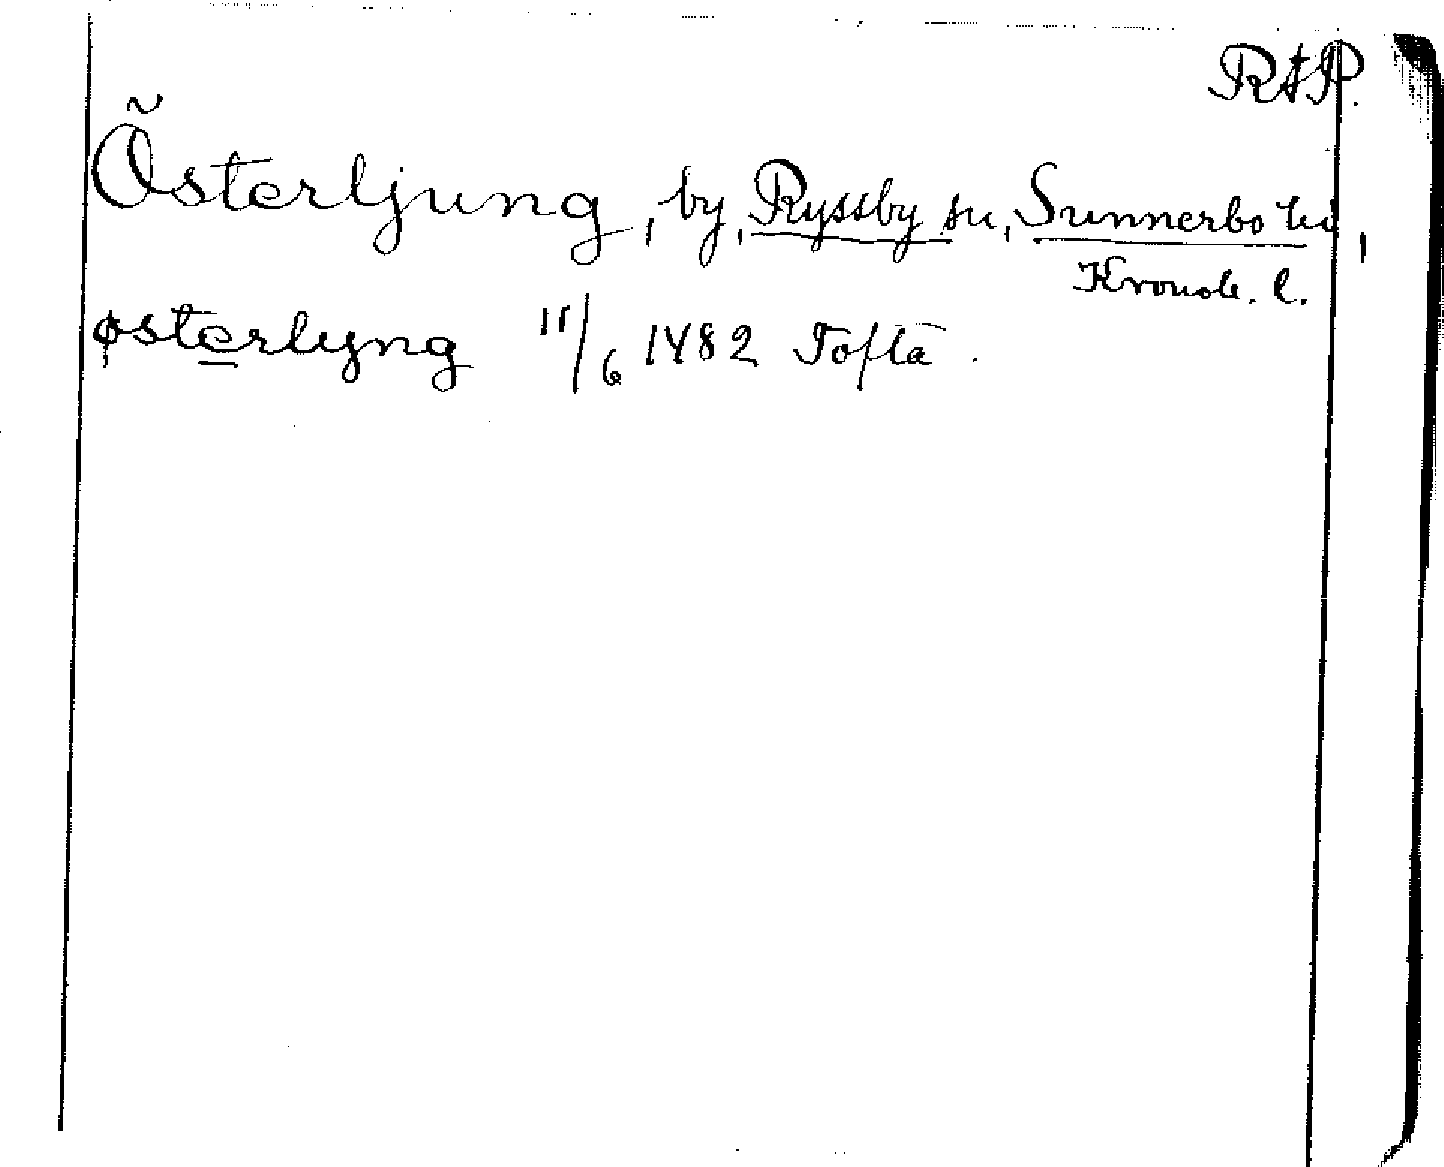 RAP.
Österljung, by, Ryssby sn, Sunnerbo hd,
Kronob. l.
østerlyng 11/6 1482 Tofta.